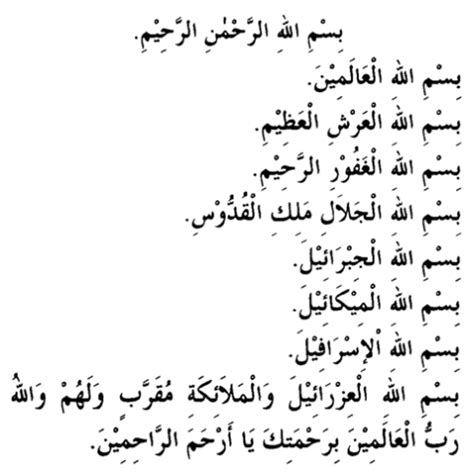 بِسْمِ اللهِ الرَّحْمٰنِ الرَّحِيْمِ.
بِسْمِ اللهِ الْعَالَمِيْنَ.
بِسْمِ اللهِ الْعَرْشِ الْعَظِيْمِ.
بِسْمِ اللهِ الْغَفُوْرِ الرَّحِيْمِ.
بِسْمِ اللهِ الْجَلَالِ مَلِكِ الْقُدُّوْسِ.
بِسْمِ اللهِ الْجِبْرَائِيْلَ.
بِسْمِ اللهِ الْمِيْكَائِيْلَ.
بِسْمِ اللهِ اْلإِسْرَافِيْلَ.
بِسْمِ اللهِ الْعِزْرَائِيْلَ وَالْمَلَائِكَةِ مُقَرَّبٍ وَلَهُمْ وَاللهُ
رَبُّ الْعَالَمِيْنَ بِرَحْمَتِكَ يَا أَرْحَمَ الرَّاحِمِيْنَ.